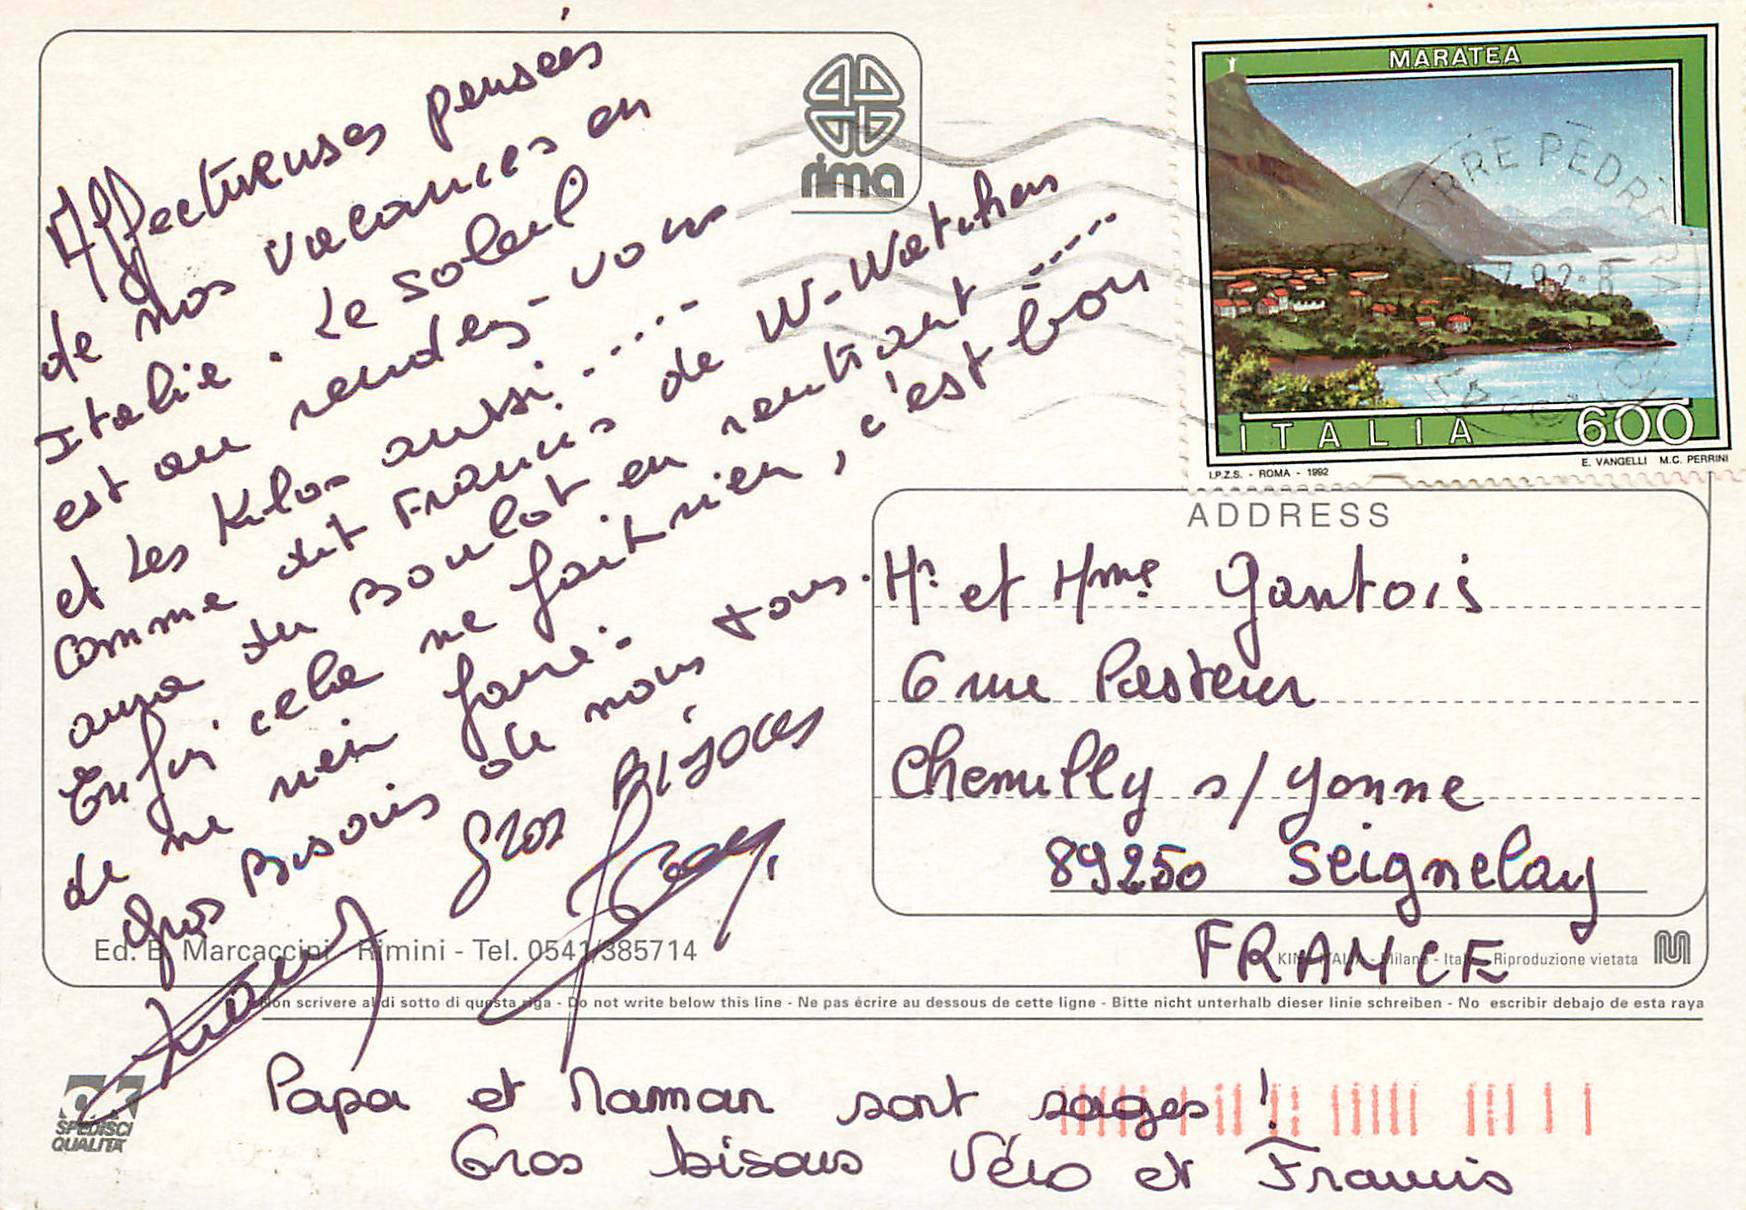 Affectueuses pensées
de nos vacances en
Italie. Le soleil
est au rendez-vous
et Les Kilos aussi.....
comme dit Francis de W-Watchers
aura du Boulot en rentrant.....
Enfin cela ne fait rien, c'est bon
de ne rien faire.
Gros Bisous de nous tous.
Gros Bisoues
rima
MARATEA
ITALIA 600
I.P.Z.S. - ROMA - 1992
E. VANGELLI M.C. PERRINI
ADDRESS
Mr et Mme Gantois
6 rue Pasteur
Chemilly s/ Yonne
89250 Seignelay
FRANCE
Ed. B. Marcaccini - Rimini - Tel. 0541/385714
KINA ITALIA - Milano - Italy - Riproduzione vietata
Non scrivere al di sotto di questa riga - Do not write below this line - Ne pas écrire au dessous de cette ligne - Bitte nicht unterhalb dieser linie schreiben - No escribir debajo de esta raya
SPEDISCI
QUALITA'
Papa et Maman sont sages !
Gros bisous Véro et Francis